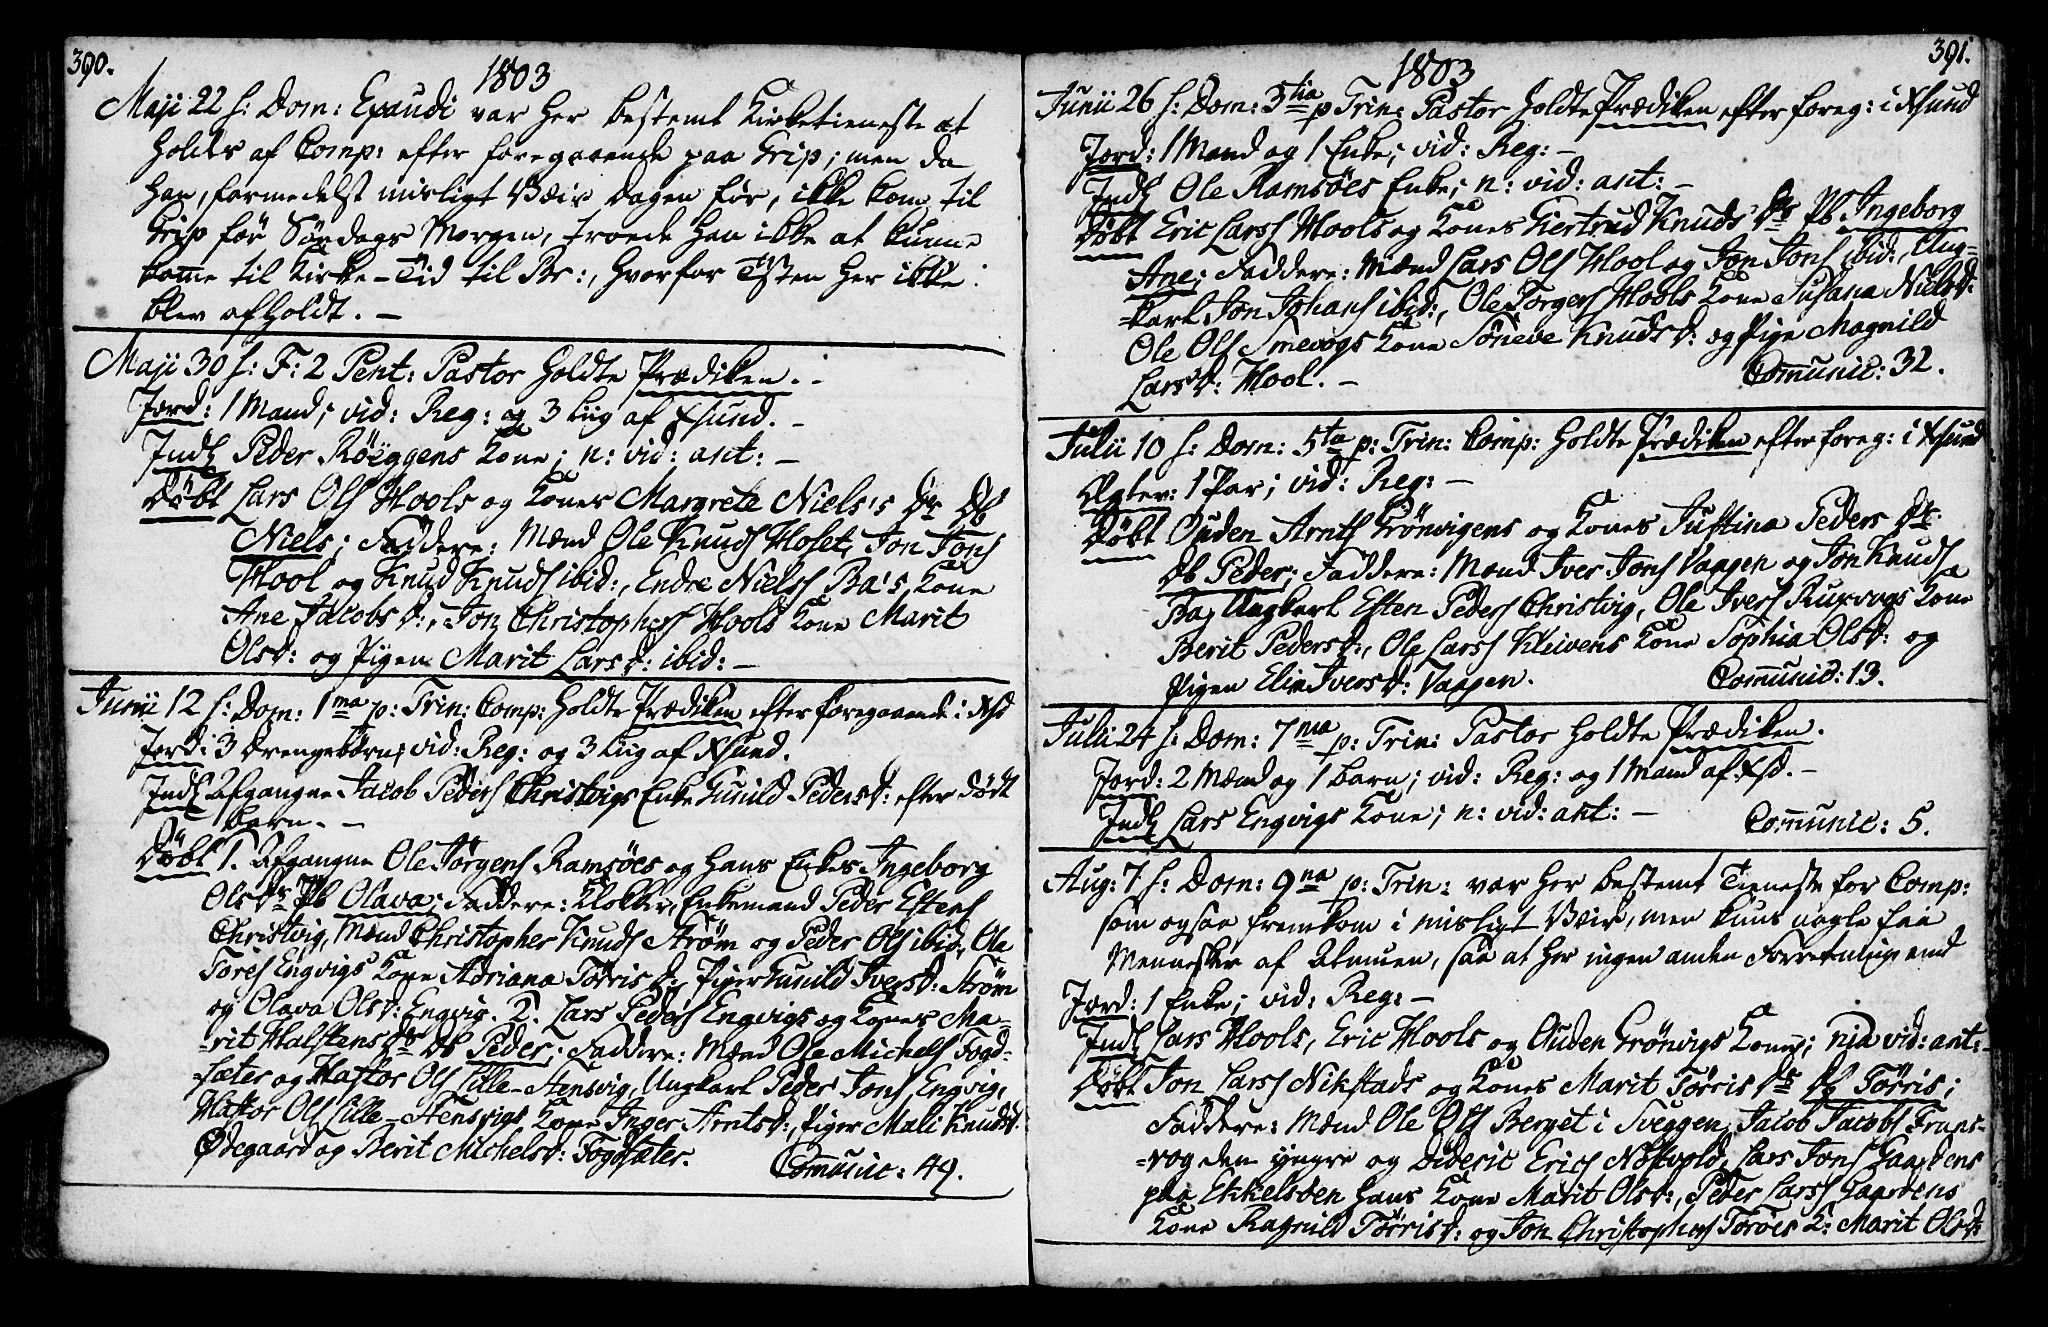 390.
1803
Maji 22 h: Dom: Exaudi var her bestemt Kirketieneste at
holdes af Comp: efter foregaaende paa Grip; men da
han, formedelst misligt Væir Dagen før, ikke kom til
Grip før Søndags Morgen, troede han ikke at kunne
komme til Kirke-Tid til Br:, hvorfor Tisten her ikke
blev afholdt. –
Maji 30 h: F: 2 Pent: Pastor holdte Prædiken. –
Jord: 1 Mand; vid: Reg: og 3 Liig af Xsund. –
Indl Peder Röeggens Kone; n: vid: ant: –
Döbt Lars Ols Hools og Kones Margrete Niels's Dr Db
Niels; Faddere: Mænd Ole Knuds Hoset, Jon Jons
Hool og Knud Knuds ibid:, Endre Niels Bæ's Kone
Ane Jacobs d:, Jon Christophers Hools Kone Marit
Olsd: og Pigen Marit Larsd: ibid: –
Junii 12 h: Dom: 1ma p: Trin: Comp: holdte Prædiken efter foregaaende i Xsd
Jord: 3 Drengebörn; vid: Reg: og 3 Liig af Xsund.
Indl Afgangne Jacob Peders Christvigs Enke Gunild Pedersd: efter dödt
barn. –
Döbt 1. Afgangne Ole Jörgens Ramsöes og hans Enkes Ingeborg
Ols Dr Pb Olava; Faddere: Klokker, Enkemand Peder Estens
Christvig, Mænd Christopher Knuds Ström og Peder Ols ibid, Ole
Tores Engvigs Kone Adriana Törrisd:, Piger Gunild Iversd: Ström
og Olava Olsd: Engvig. 2. Lars Peders Engvigs og Kones Ma-
-rit Halstens Dr Db Peder; Faddere: Mænd Ole Michels Fogd-
sæter og Hastor Ols Lille-Stensvig, Ungkarl Peder Jons Engvig,
Hastor Ols Lille-Stensvigs Kone Inger Arntsd:, Piger Mali Knudsd:
Ödegaard og Berit Michelsd: Fogdsæter. Communic: 49.
391.
1803
Junii 26 h: Dom: 3tia p Trin: Pastor holdte Prædiken efter foreg: i Xsund
Jord: 1 Mand og 1 Enke; vid: Reg: –
Indl Ole Ramsöes Enke; n: vid: ant: –
Döbt Eric Lars Hools og Kones Gertrud Knuds Dr Pb Ingeborg
Ane; Faddere: Mænd Lars Ols Hool og Jon Jons ibid:, Ung-
-karl Jon Johans ibid:, Ole Torgers Hools Kone Susana Nielsd:
Ole Ols Smevogs Kone Söneve Knudsd: og Pige Magnild
Larsd: Hool. – Communic: 32.
Julii 10 h: Dom: 5ta p: Trin: Comp: holdte Prædiken efter foreg: i Xsund
Ægtev: 1 Par; vid: Reg: –
Döbt Ouden Arnts Grönvigens og Kones Justina Peders Dr.
Db Peder; Faddere: Mænd Iver Jons Vaagen og Jon Knuds
Bæ, Ungkarl Esten Peders Christvig, Ole Ivers Ruxvogs Kone
Berit Pedersd:, Ole Lars Kleivens Kone Sophia Olsd: og
Pigen Elin Iversd: Vaagen. Communic: 13.
Julii 24 h: Dom: 7ma p: Trin: Pastor holdte Prædiken.
Jord: 2 Mænd og 1 barn; vid: Reg: og 1 Mand af Xsd. –
Indl Lars Engvigs Kone; n: vid: ant: – Communic: 5.
Aug: 7 h: Dom: 9na p: Trin: var her bestemt Tieneste for Comp:
som ogsaa fremkom i misligt Væir, men kuns nogle faa
Mennesker af Almuen, saa at her ingen anden Forretning end
Jord: 1 Enke; vid: Reg: –
Indl Lars Hools, Eric Hools og Ouden Grönvigs Koner; nia vid: ant: –
Döbt Jon Lars Nikstads og Kones Marit Törris Dr Db Törris;
Faddere: Mænd Ole Ols Berget i Sveggen, Jacob Jacobs Frans-
-vog den yngre og Dideric Erics Nöstvold, Lars Jons Gaardens
paa Ekkelsöen hans Kone Marit Olsd:, Peder Lars Gaardens
Kone Ragnild Törrisd: og Jon Christophers Toröes K: Marit Olsd: